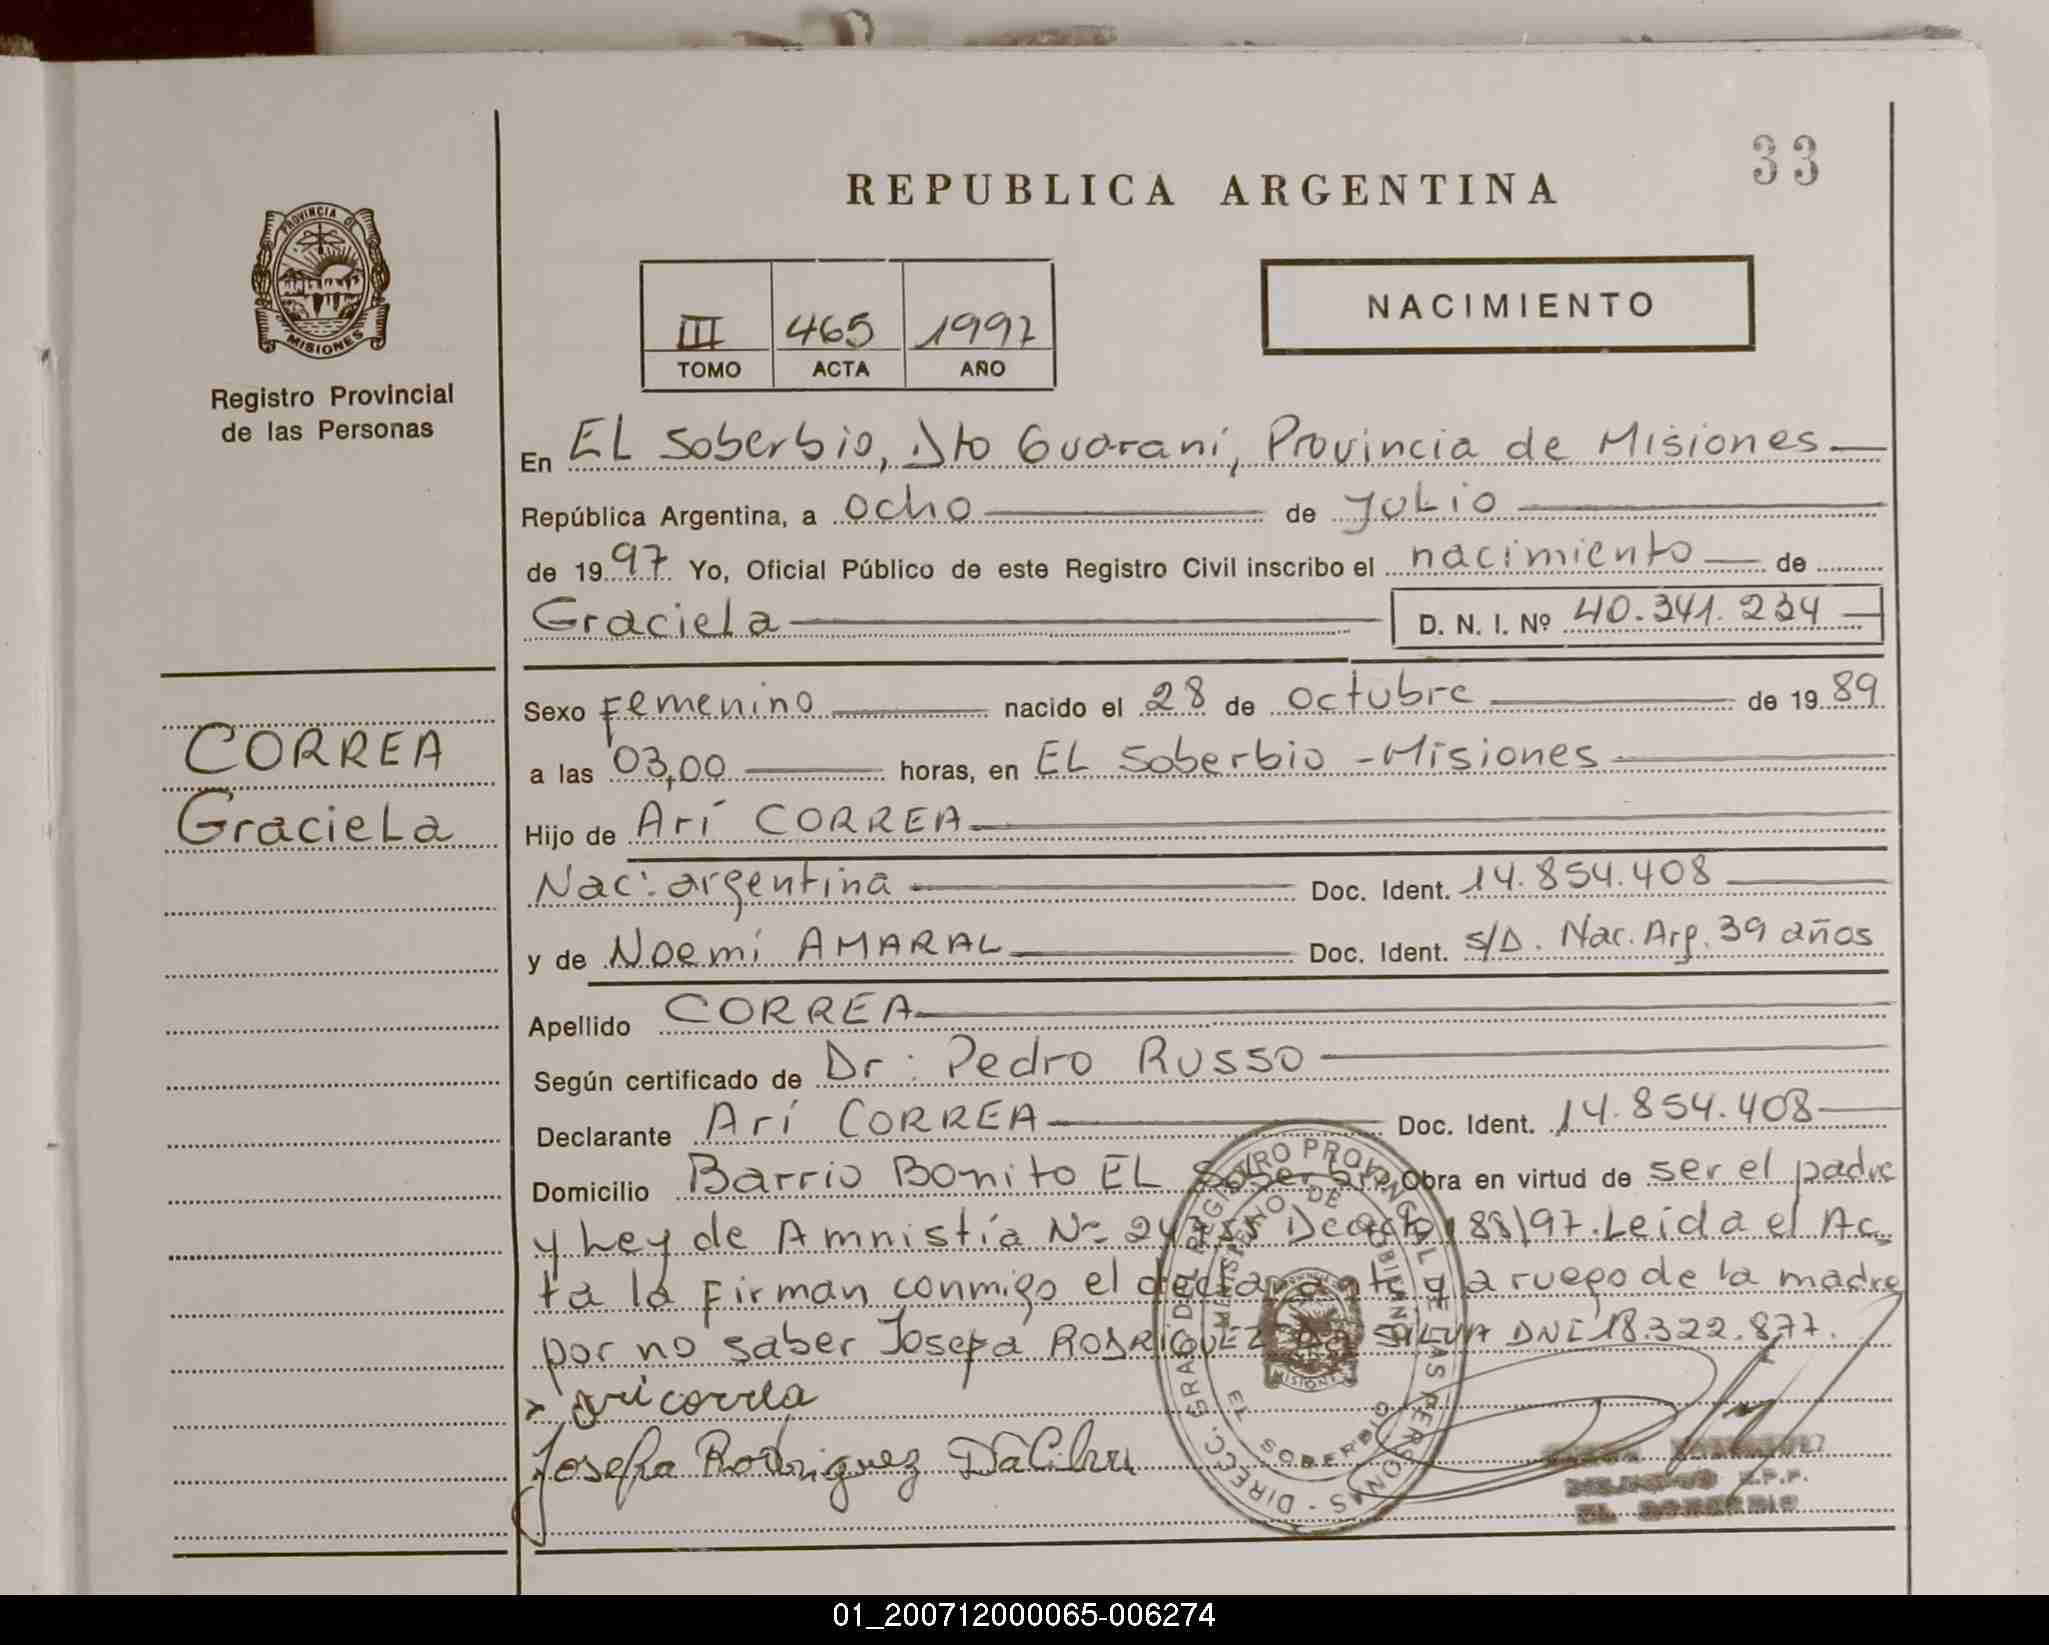 33
REPUBLICA ARGENTINA
PROVINCIA DE
MISIONES
Registro Provincial
de las Personas
III 465 1997
TOMO ACTA AÑO
NACIMIENTO
En EL Soberbio, Dto Guaraní, Provincia de Misiones
República Argentina, a ocho de Julio
de 1997 Yo, Oficial Público de este Registro Civil inscribo el nacimiento de
Graciela D. N. I. Nº 40.341.234
Sexo Femenino nacido el 28 de octubre de 1989
CORREA
a las 03,00 horas, en EL Soberbio - Misiones
Graciela
Hijo de Arí CORREA
Nac: argentina Doc. Ident. 14.854.408
y de Noemí AMARAL Doc. Ident. s/D. Nac. Arg. 39 años
Apellido CORREA
Según certificado de Dr: Pedro Russo
Declarante Arí CORREA Doc. Ident. 14.854.408
Domicilio Barrio Bonito EL Soberbio Obra en virtud de ser el padre
y Ley de Amnistía Nº 24755 Decreto 188/97. Leída el Ac
ta la Firman conmigo el declarante y a ruego de la madre
por no saber Josefa RODRIGUEZ Da SILVA DNI 18.322.877.
ari correa
Josefa Rodriguez
DIREC. GRAL. DEL REGISTRO PROVINCIAL DE LAS PERSONAS
MINISTERIO DE GOBIERNO
EL SOBERBIO
MISIONES
R.P.P.
EL SOBERBIO
01_200712000065-006274